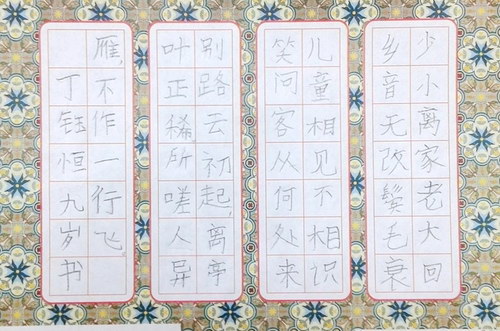 少小离家老大回
乡音无改鬓毛衰
儿童相见不相识
笑问客从何处来
别路云初起,离亭
叶正稀。所嗟人异
雁,不作一行飞。
丁钰恒九岁书